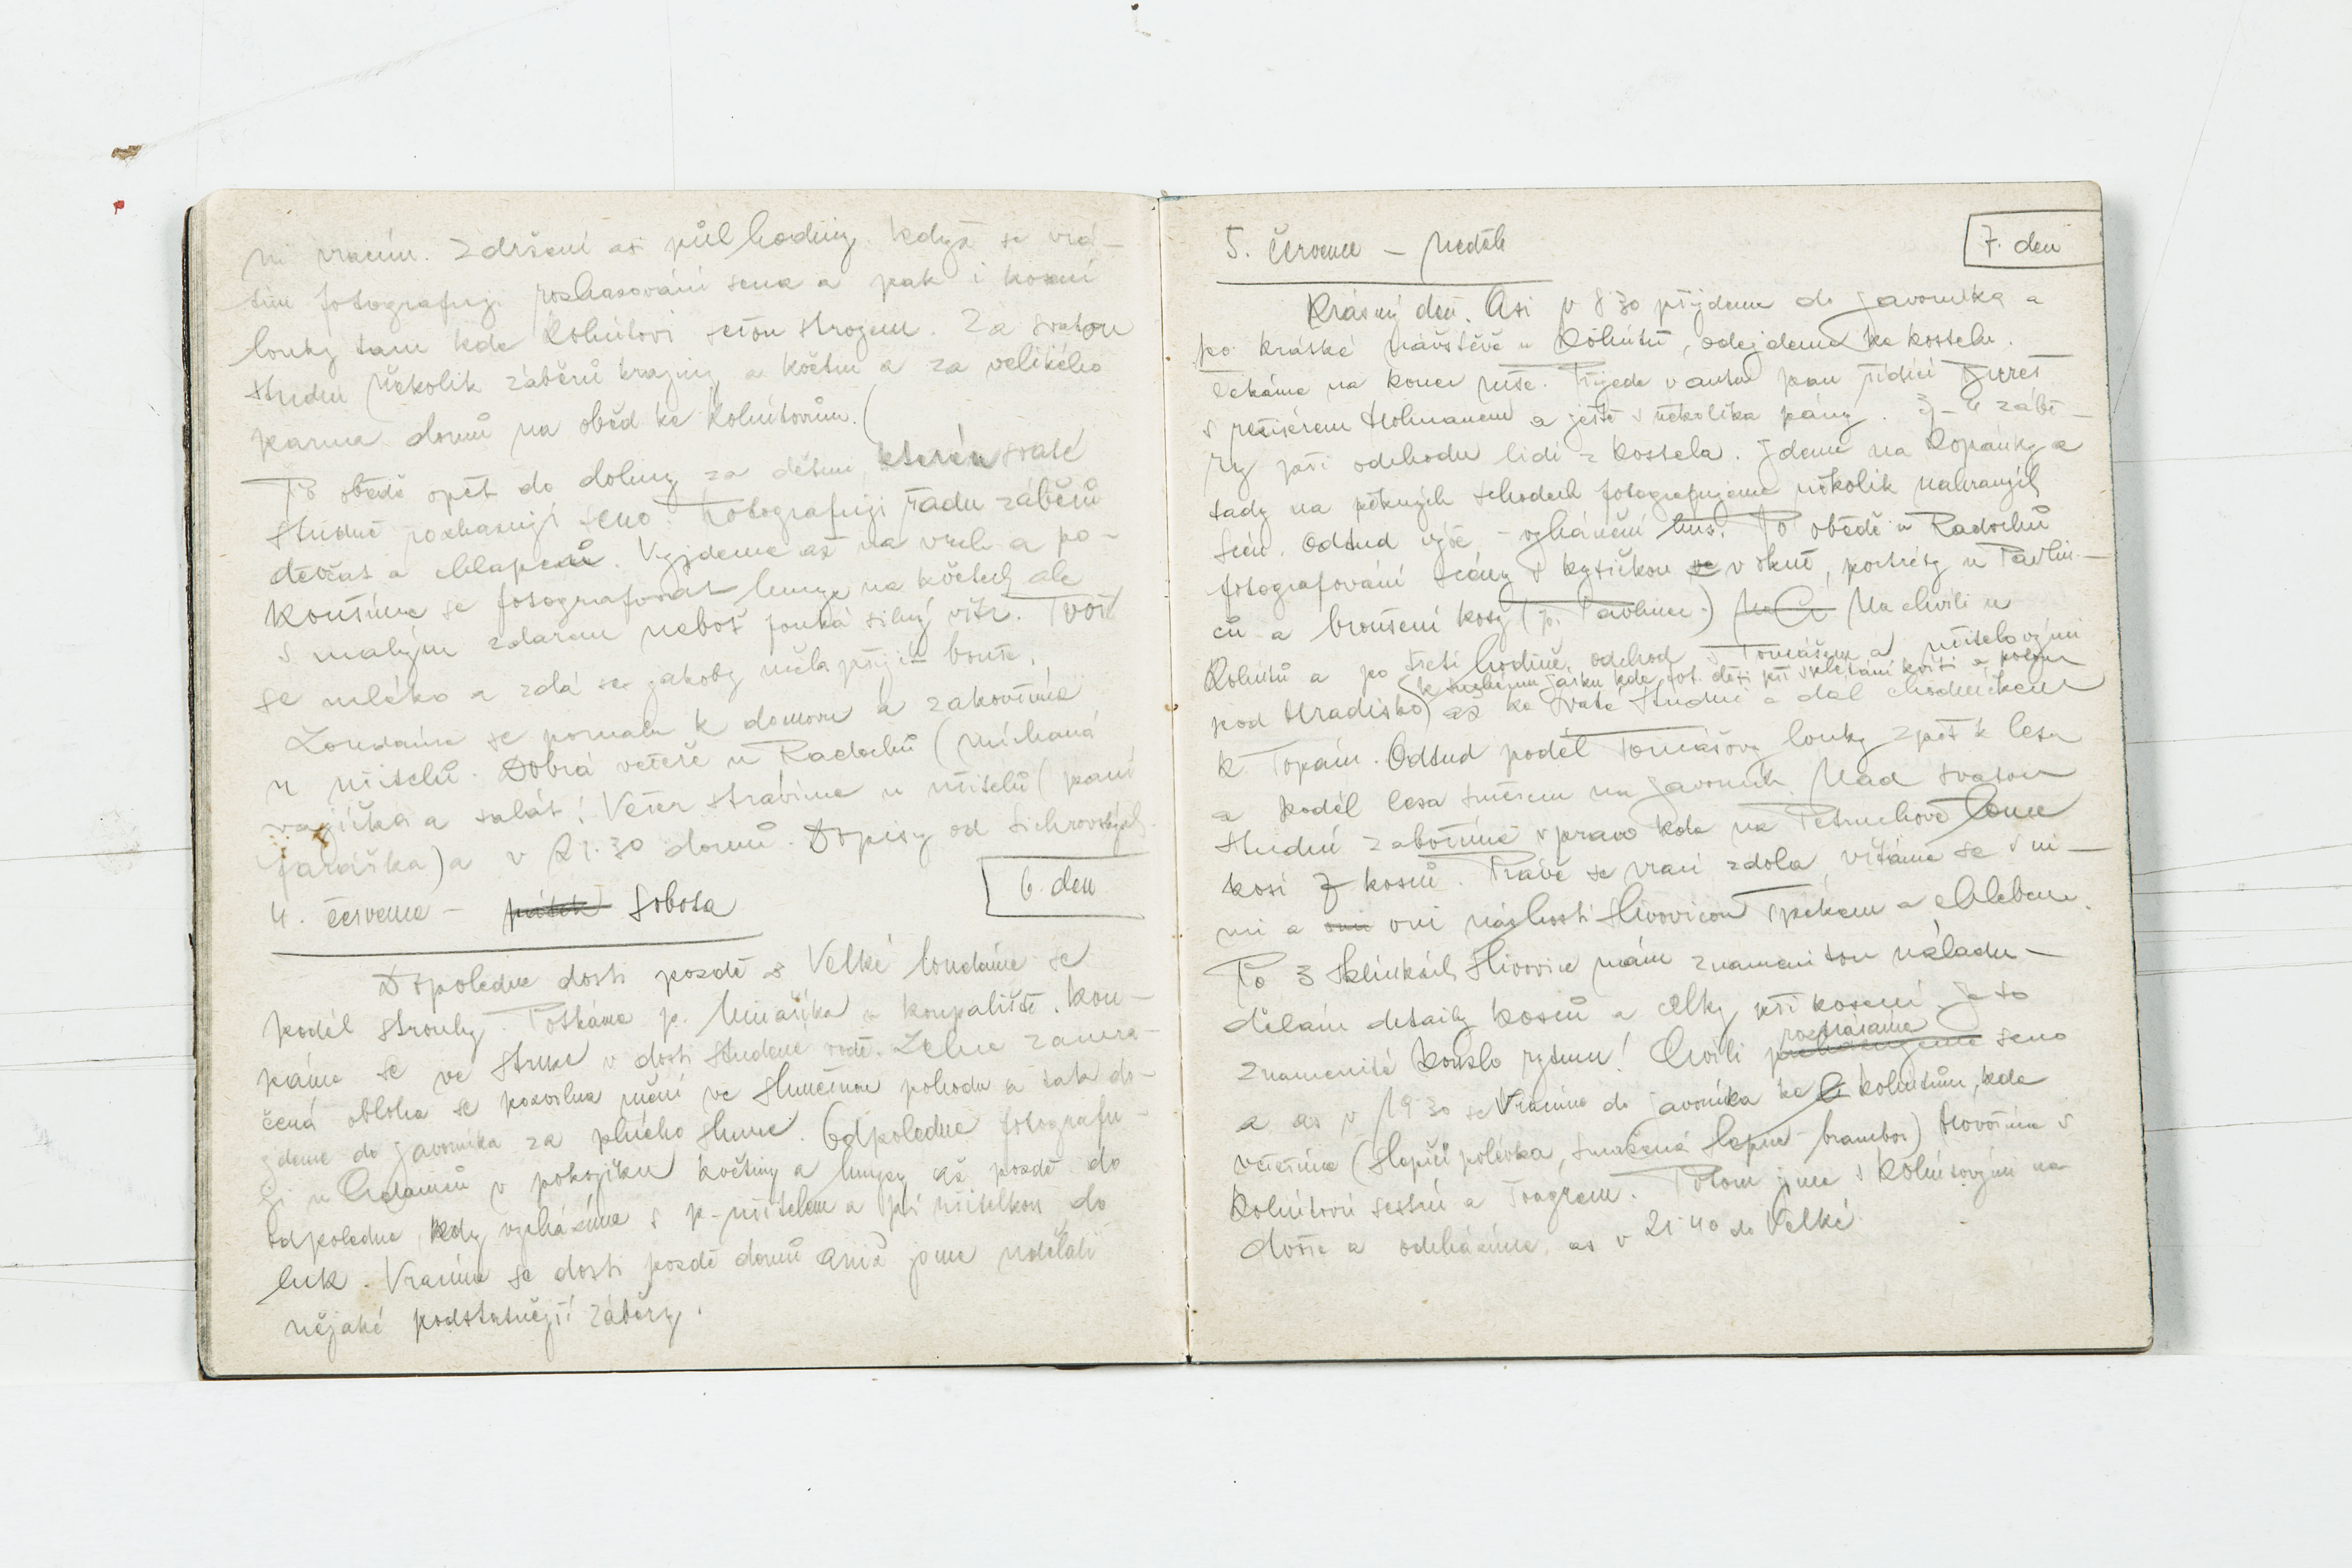 ni vracím. Zdržení asi půl hodiny. Když se vrá-
tím fotografuji rozhasování sena a pak i kosení
louky tam kde Kohútovi sečou strojem. Za svatou
studní několik záběrů krajiny a květin a za velikého
parna domů na oběd ke Kohútovům.
Po obědě opět do doliny za dětmi, které u svaté
studně rozhasují seno. Fotografuji řadu záběrů
děvčat a chlapců. Vyjdeme až na vrch a po-
koušíme se fotografovat hmyz na květech ale
s malým zdarem neboť fouká silný vítr. Tvoří
se mléko a zdá se jakoby měla přijít bouře.
Loudáme se pomalu k domovu a zakotvíme
u učitelů. Dobrá večeře u Radochů (míchaná
vajíčka a salát! Večer strávíme u učitelů (paní
farářka) a v 21.30 domů. Dopisy od Sichrovských
4. července - pátek Sobota
6. den
Dopoledne dosti pozdě z Velké loudáme se
podél strouhy. Potkáme p. Minaříka u koupaliště. Kou-
páme se ve strouze v dosti studené vodě. Lehce zamra-
čená obloha se pozvolna mění ve slunečnou pohodu a tak do-
jdeme do Javorníka za plného slunce. Odpoledne fotografu-
ji u Adamců v pokojíku květiny a hmyz až pozdě do
odpoledne, kdy vycházíme s p. učitelem a pí učitelkou do
luk. Vracíme se dosti pozdě domů aniž jsme udělali
nějaké podstatnější záběry.
5. července - Neděle
7. den
Krásný den. Asi v 8 30 přijdeme do Javorníka a
po krátké návštěvě u Kohútů, odejdeme ke kostelu.
Čekáme na konec mše. Přijede v autu pan řídící
s režisérem Holmanem a ještě s několika pány. 3-4 zábě-
ry při odchodu lidí z kostela. Jdeme na Kopánky a
tady na pěkných schodech fotografujeme několik nahraných
scén. Odtud výše - vyhánění hus. Po obědě u Radochů
fotografování scény s kytičkou v okně, portréty u Pavlin-
ců a broušení kosy (p. Pavlinec.) Na chvíli u
Kohútů a po třetí hodině odchod s Tomášem a učitelovými
k jarku kde fot. děti při splétání kvítí a potom
pod Hradisko) až ke Svaté Studni a dál chodníčkem
k Topám. Odtud podél Tomášovy louky zpět k lesu
a podél lesa směrem na Javorník. Nad svatou
studní zabočíme vpravo kde na Petruchově louce
kosí 7 kosců. Právě se vrací zdola, vítáme se s ni-
mi a oni oni nás hostí slivovicou špekem a chlebem.
Po 3 sklínkách slivovice mám znamenitou náladu -
dělám detaily kosců a celky při kosení, je to
znamenité kouzlo rytmu! Chvíli
rozhrábáme seno
a as v 19 30 se vracíme do Javorníka ke Kohútům, kde
večeříme (slepičí polévka, smažená slepice brambor) hovoříme s
Kohútovou sestrou a švagrem. Potom jsme s Kohútovými na
dvoře a odcházíme as v 21 40 do Velké.